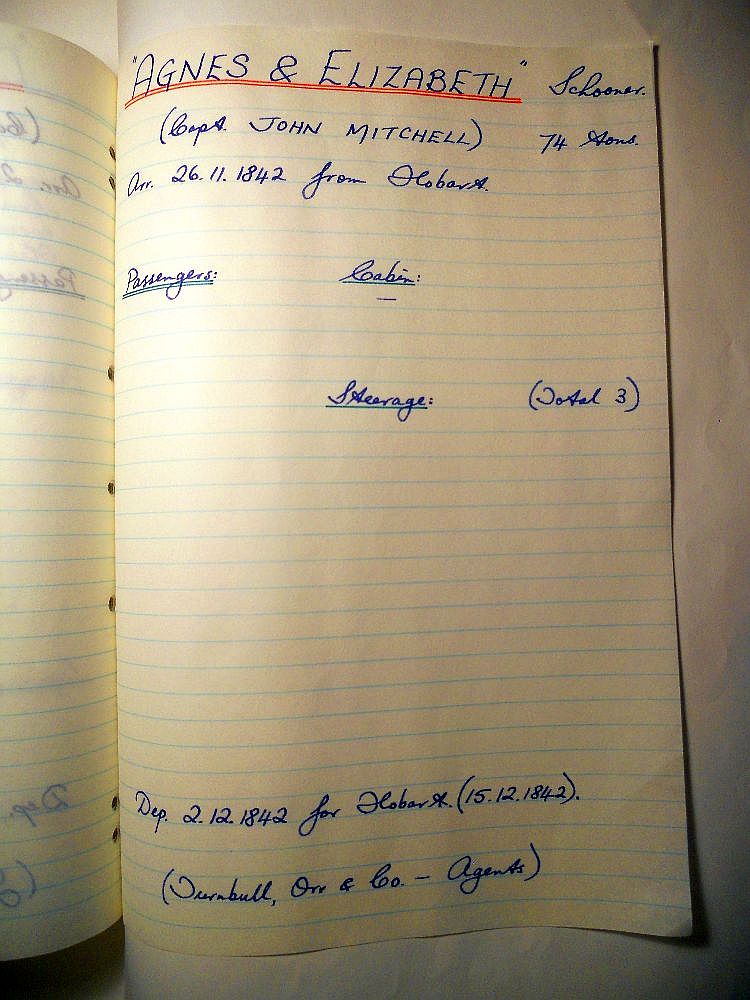 "AGNES & ELIZABETH" Schooner.
(Capt. JOHN MITCHELL) 74 tons.
Arr. 26.11.1842 from Hobart.
Passengers: Cabin:
—
Steerage: (Total 3)
Dep. 2.12.1842 for Hobart. (15.12.1842).
(Turnbull, Orr & Co. – Agents)